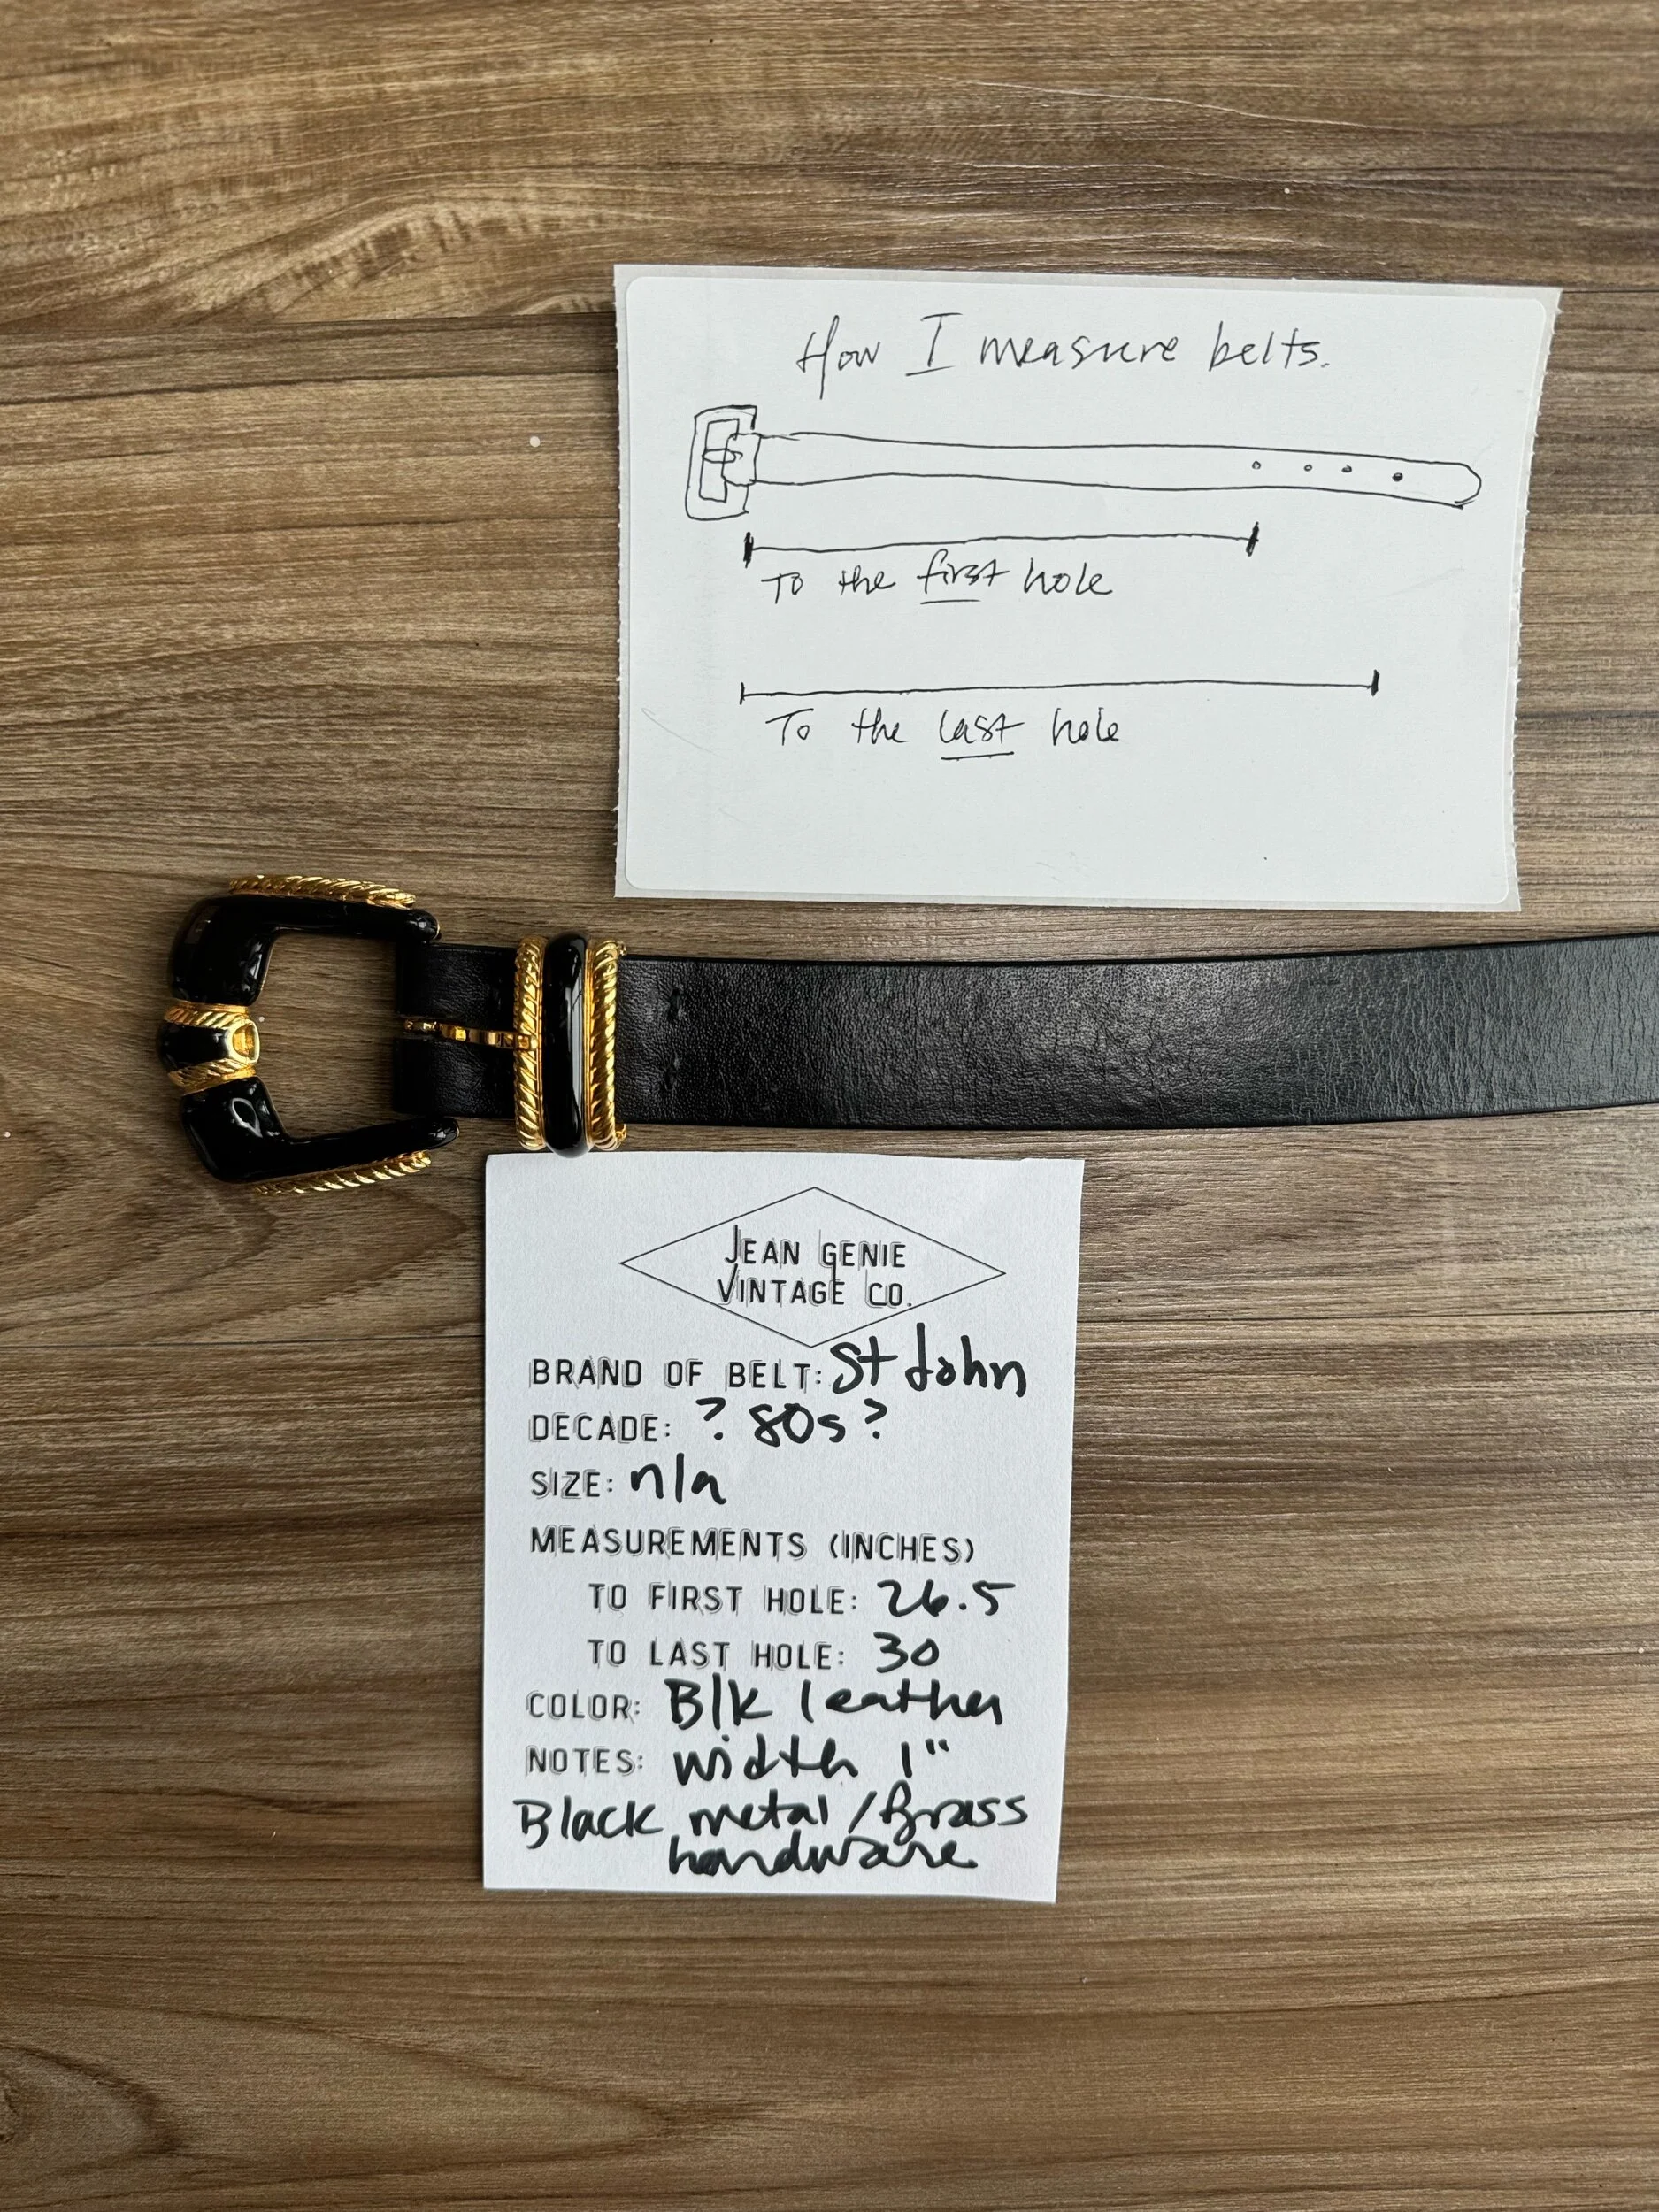 How I measure belts.
To the first hole
To the last hole
JEAN GENIE
VINTAGE CO.
BRAND OF BELT: St John
DECADE: ? 80s?
SIZE: n/a
MEASUREMENTS (INCHES)
TO FIRST HOLE: 26.5
TO LAST HOLE: 30
COLOR: Blk leather
NOTES: width 1"
Black metal/Brass
hardware